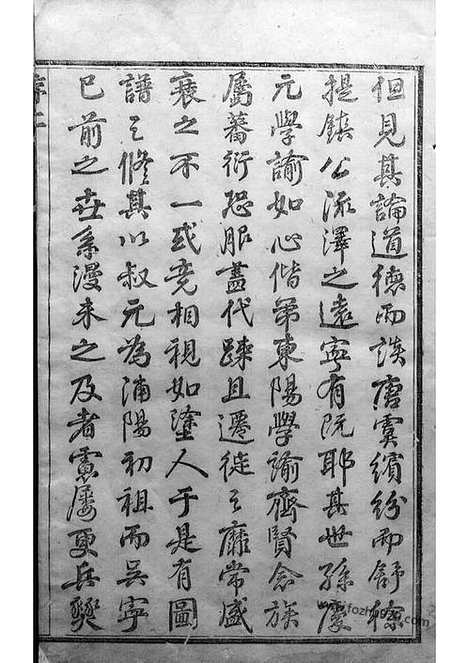 但見其論道德而談唐虞繽紛而舒徐
提鎮公流澤之遠寧有既耶其世孫慶
元學諭如心偕弟東陽學諭齊賢念族
屬蕃衍恐服盡代踈且遷徙之靡常盛
衰之不一或竟相視如塗人于是有圖
譜之修其以叔元為浦陽初祖而吳寧
已前之世系漫未之及者憲屡更兵燹
序二